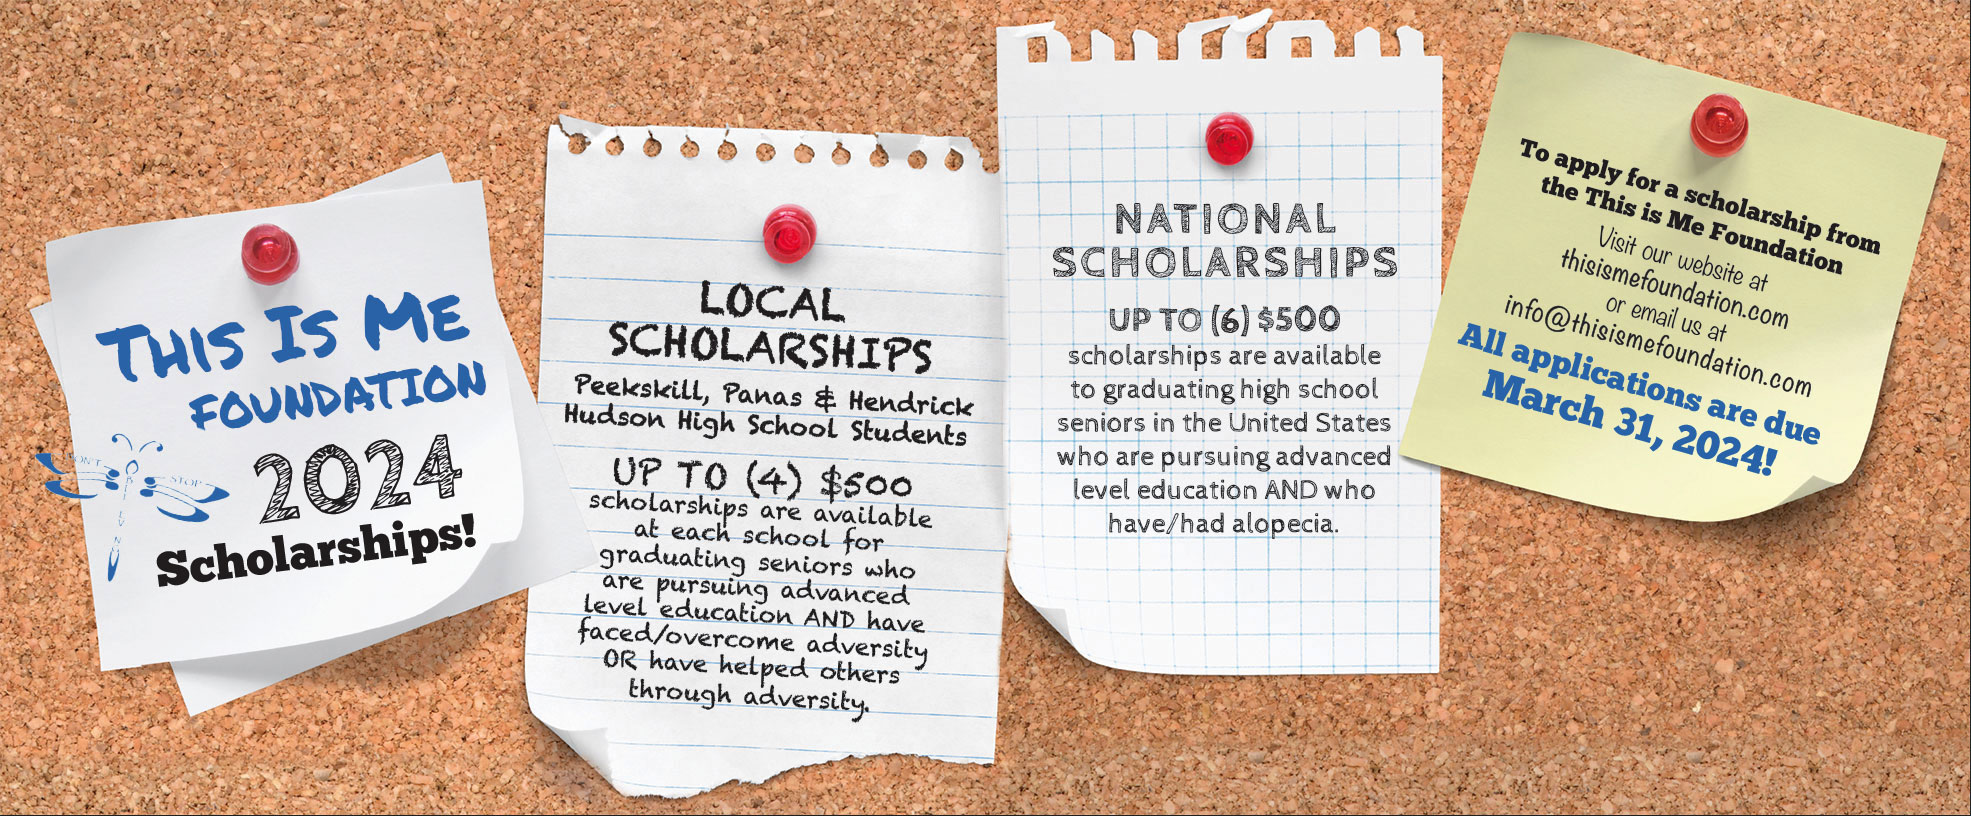 THIS IS ME
FOUNDATION
DON'T STOP
BELIEVING
2024
Scholarships!
LOCAL
SCHOLARSHIPS
Peekskill, Panas & Hendrick
Hudson High School Students
UP TO (4) $500
scholarships are available
at each school for
graduating seniors who
are pursuing advanced
level education AND have
faced/overcome adversity
OR have helped others
through adversity.
NATIONAL
SCHOLARSHIPS
UP TO (6) $500
scholarships are available
to graduating high school
seniors in the United States
who are pursuing advanced
level education AND who
have/had alopecia.
To apply for a scholarship from
the This is Me Foundation
Visit our website at
thisismefoundation.com
or email us at
info@thisismefoundation.com
All applications are due
March 31, 2024!